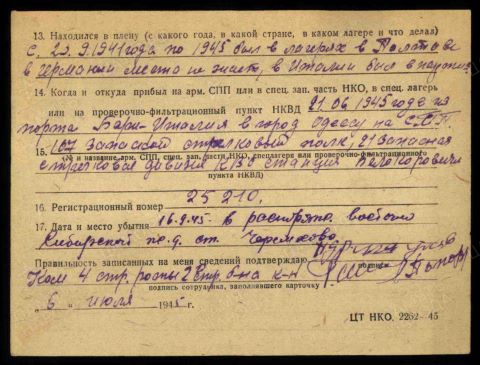 13. Находился в плену (с какого года, в какой стране, в каком лагере и что делал)
с 23.9.1941 года по 1945 был в лагерях в Полтаве
в Германии место не знает, в Италии был в
14. Когда и откуда прибыл на арм. СПП или в спец. зап. часть НКО, в спец. лагерь
или на проверочно-фильтрационный пункт НКВД 21.06.1945 года из
порта Бари-Италия в город Одессу на СПП
15. 107 запасной стрелковый полк, 21 запасная
(№ и название арм. СПП, спец. зап. части НКО, спецлагеря или проверочно-фильтрационного
стрелковая дивизия станция
пункта НКВД)
16. Регистрационный номер 25210.
17. Дата и место убытия 16.9.45. в распоряж. восточно
Сибирской ж.д. ст. Черемхово
Правильность записанных на меня сведений подтверждаю
подпись
Ком 4 стр роты 2 стр б-на к-н
подпись сотрудника, заполнявшего карточку
„6" июля 1945 г.
ЦТ НКО. 2262-45